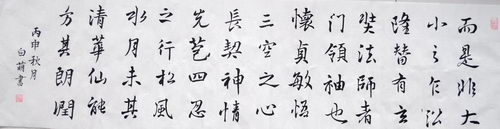 而是非大
小之乍沿
隆替有玄
奘法師者
門領袖也
懷貞敏悟
三空之心
長契神情
先苞四忍
之行松風
水月未其
清華仙能
方其朗潤
丙申秋月
白書